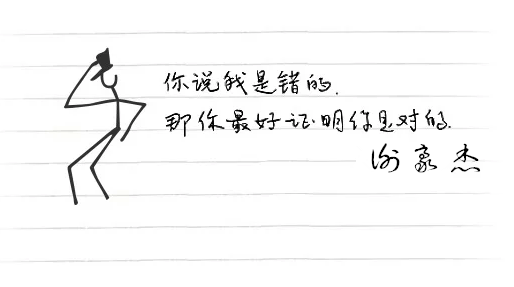 你说我是错的.
那你最好证明你是对的.
谢豪杰